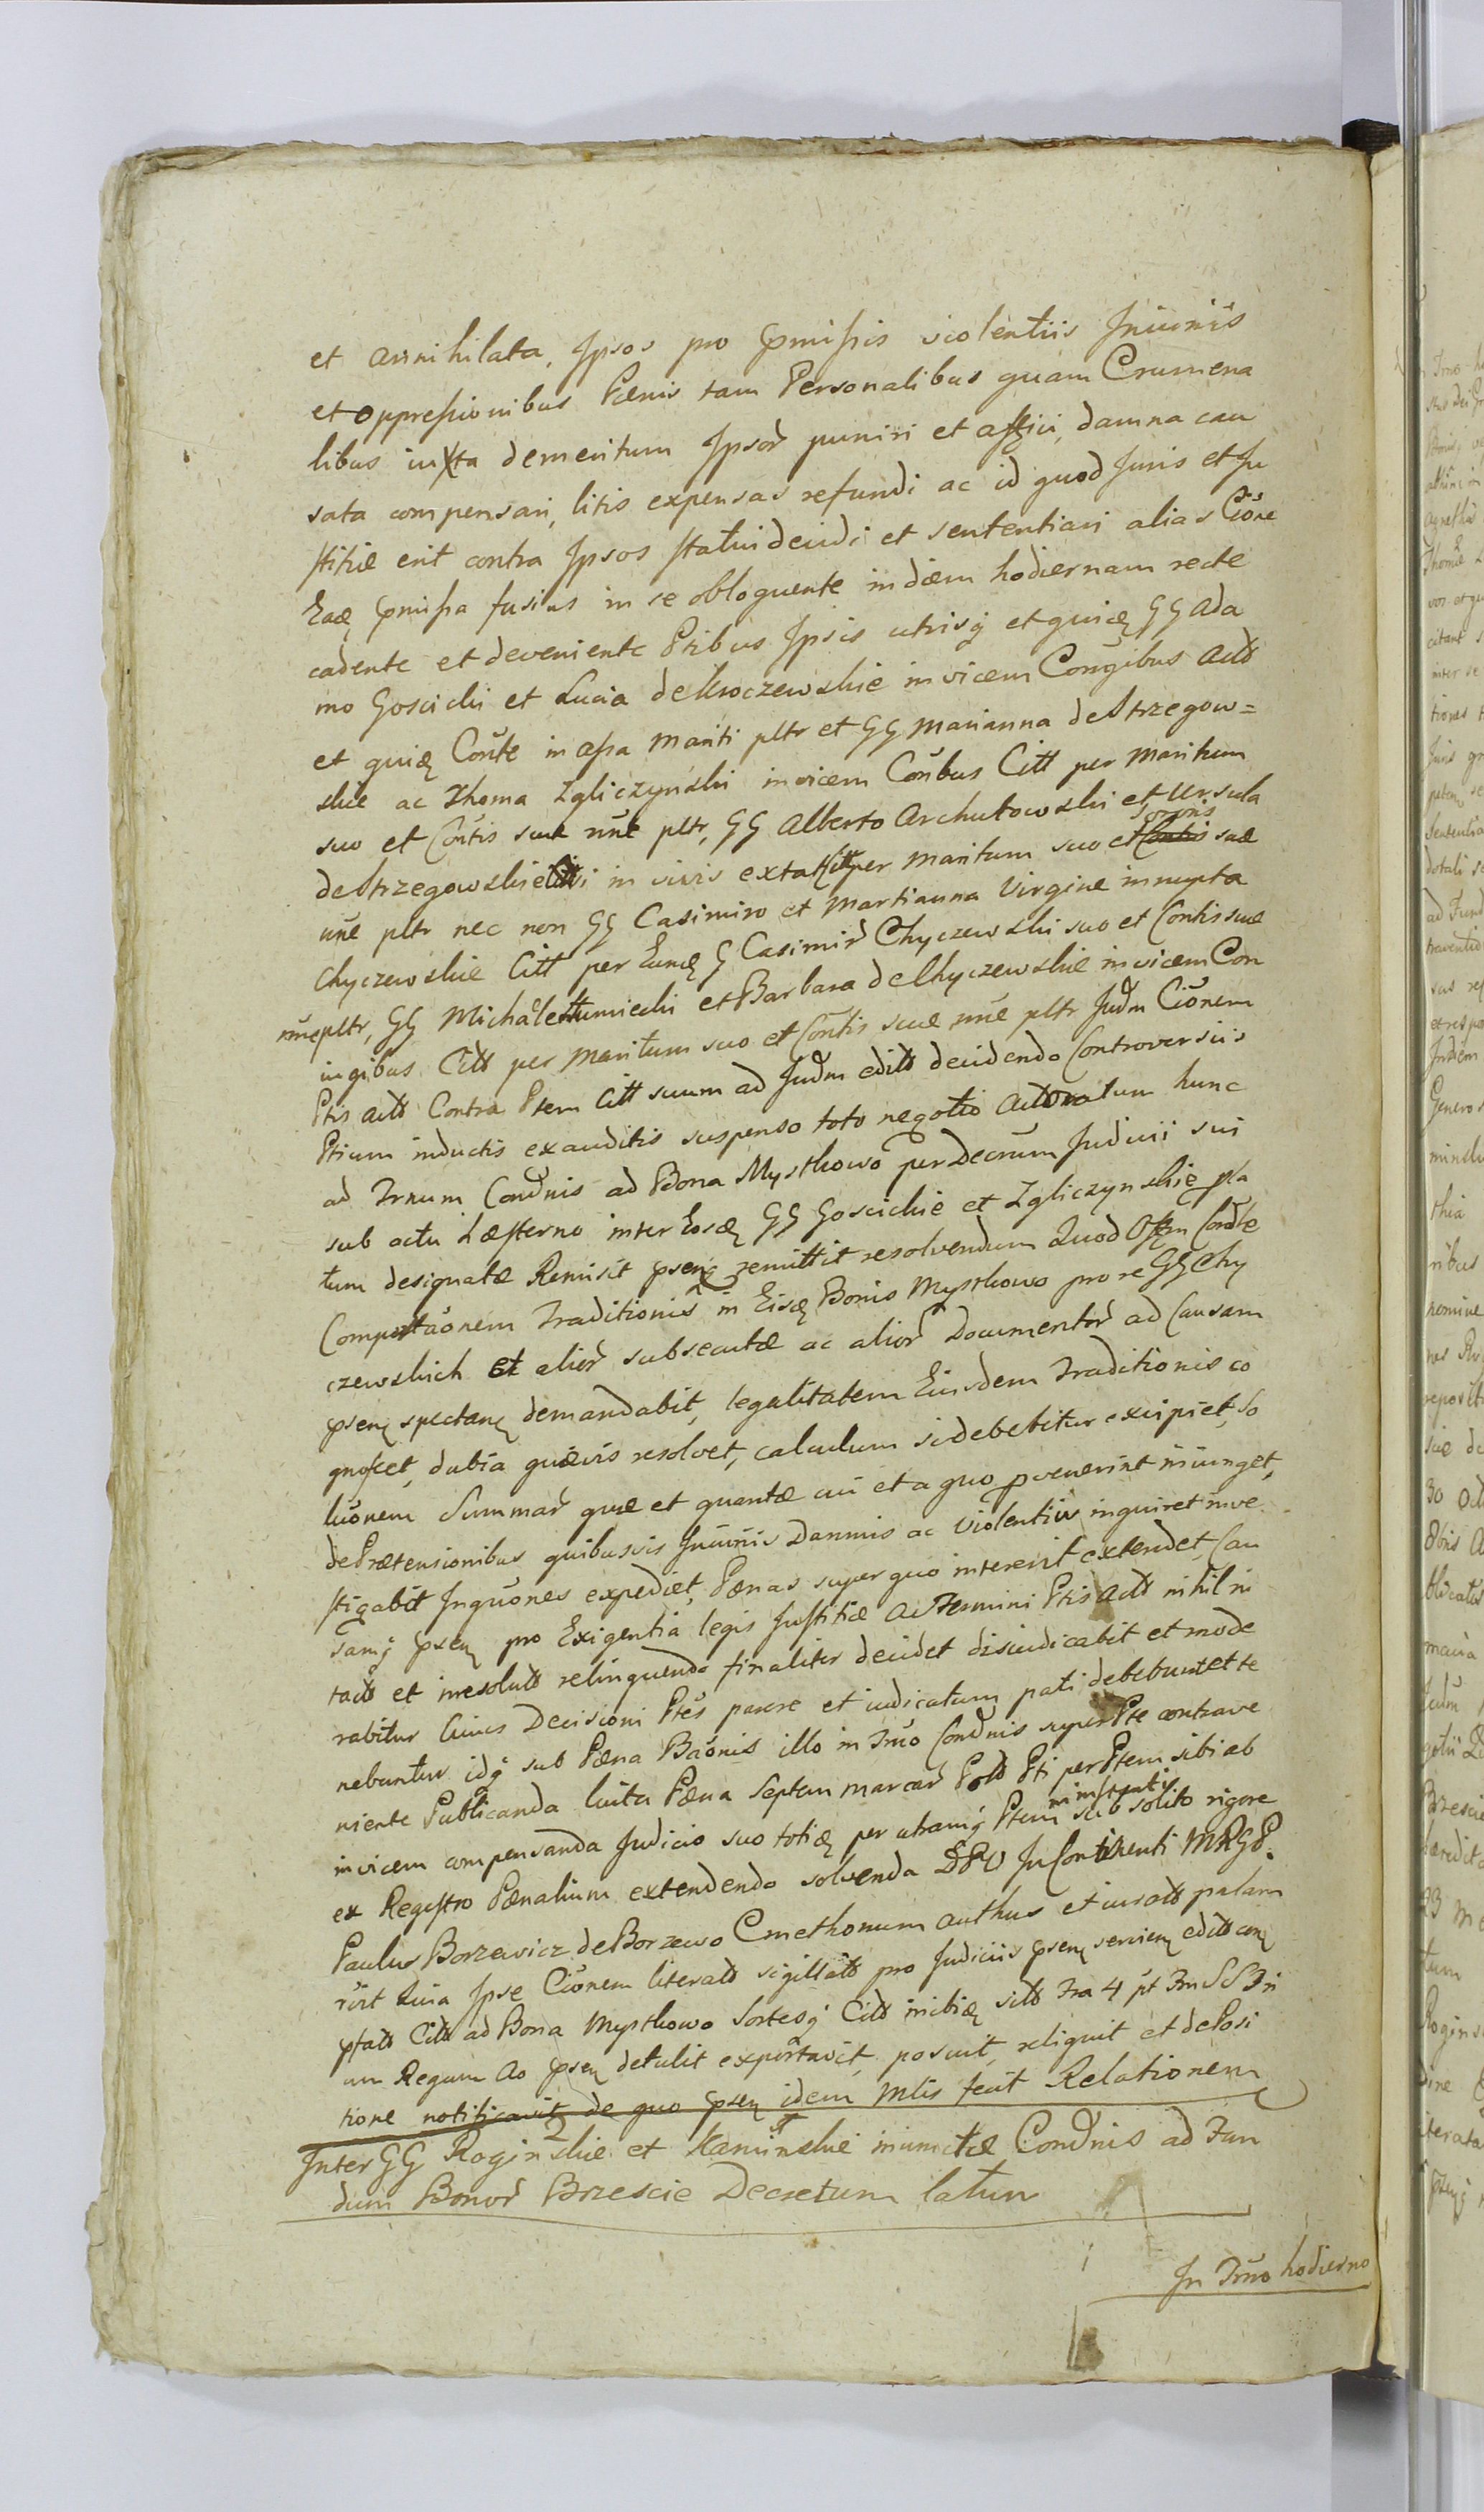 et annihilata, Ipsos pro pmissis violentiis Iniuriis
et oppressionibus Pænis tam Personalibus quam Crumena
libus iuxta demeritum Ipsor puniri et affici, damna cau
sata compensari, litis expensas refundi ac id quod Juris et Ju
stitiæ erit contra Ipsos statui decidi et sententiari alias Cione
Eadę pmissa fusius in se obloquente in diem hodiernam recte
cadente et deveniente Ptibus Ipsis utrisq et quidę GG Ada
mo Goscicki et Lucia de Kroczewskie invicem Coniugibus Actt
et quidę Conte in assa Mariti pltr et GG Marianna de Strzegow=
skie ac Thoma Zgliczynski invicem Conbus Citt per Maritum
suo et Contis suæ nne pltr, GG Alberto Archutowski et Ursula
de Strzegowskie in vivis extatt Citt per Maritum suo et Sororis suæ
nne pltr nec non GG Casimiro et Martianna Virgine innupta
Chyczewskie Citt per Eundę G Casimir Chyczewski suo et Contis suæ
nne pltr, GG Michale Humiecki et Barbara de Chyczewskie invicem Con
iugibus Citt per Maritum suo et Contis suæ nne pltr Judm Cionem
Ptis Actt Contra Ptem Citt suum ad Judm editt decidendo Controversiis
Ptium inductis exauditis suspenso toto negotio Actoratum hunc
ad Trnum Condnis ad Bona Mystkowo per Decrum Judicii sui
sub actu hæsterno inter Eosdę GG Goscickie et Zgliczynskie pla
tum designatæ Remisit psenę remittit resolvendum Quod Offm Condle
Comportaonem Traditionis in Eisdę Bonis Mystkowo pro re GG Chy
czewskich et alior subsecutæ ac alior Documentor ad Causam
psenę spectanę demandabit, legalitatem Eiusdem Traditionis co
gnoscet, dubia quævis resolvet, calculum si debebitur excipiet, so
luonem Summar quæ et quantæ cui et a quo pvenerint iniunget,
de Prætensionibus quibusvis Iniuriis Damnis ac Violentiis inquiret inve
stigabit Inquones expediet, Pænas super quo intererit extendet, Cau
samq psenę pro Exigentia legis Justitiæ ac Termini Ptis Actt nihil in
tactt et irresolutt relinquendo finaliter decidet disiudicabit et mode
rabitur Cuius Decisioni Ptes parere et iudicatum pati debebunt et te
nebuntur idq sub Pæna Baonis illo in Trno Condnis super Pte contrave
niente Publicanda luita Pæna Septem marcar Pold Pti per Ptem sibi ab
invicem compensanda Judicio suo totidę per utramq Ptem ministrali sub solito rigore
ex Regestro Pænalium extendendo solvenda DPO In Continenti MRGP.
Paulus Borzewicz de Borzewo Cmethonum authus et iuratt palam
rict Quia Ipse Cionem literatt sigillatt pro Judiciis psenę servienę editt conę
pfatt Citt ad Bona Mystkowo Sortesq Citt inibidę sitt Fra 4 pt Fm SS Tri
um Regum Ao psenę detulit exportavit, posuit, reliquit et de Posi
tione notificavit de quo psenę idem Mlis fecit Relationem
Inter GG Roginskie et Kaminskie iniunctæ Condnis ad Fun
dum Bonor Brzescie Decretum latum
In Trno hodierno